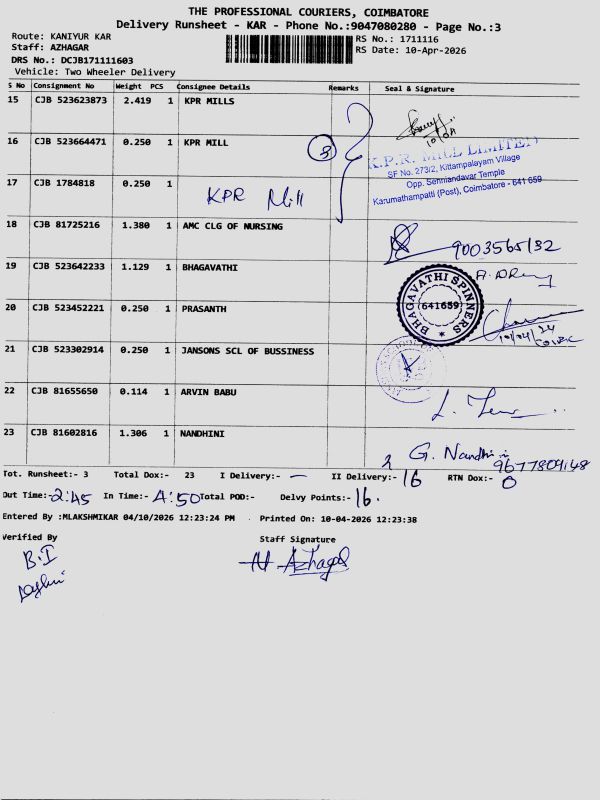 THE PROFESSIONAL COURIERS, COIMBATORE
Delivery Runsheet - KAR - Phone No.:9047080280 - Page No.:3
Route: KANIYUR KAR
RS No.: 1711116
Staff: AZHAGAR
RS Date: 10-Apr-2026
DRS No.: DCJB171111603
Vehicle: Two Wheeler Delivery
S No Consignment No Weight PCS Consignee Details Remarks Seal & Signature
15 CJB 523623873 2.419 1 KPR MILLS
16 CJB 523664471 0.250 1 KPR MILL 3
K.P.R. MILL LIMITED
SF No. 273/2, Kittampalayam Village
Opp. Senniandavar Temple
Karumathampatti (Post), Coimbatore - 641 659
17 CJB 1784818 0.250 1 KPR Mill
18 CJB 81725216 1.380 1 AMC CLG OF NURSING
9003565132
19 CJB 523642233 1.129 1 BHAGAVATHI
BHAGAVATHI SPINNERS
641659
20 CJB 523452221 0.250 1 PRASANTH
21 CJB 523302914 0.250 1 JANSONS SCL OF BUSSINESS
22 CJB 81655650 0.114 1 ARVIN BABU
23 CJB 81602816 1.306 1 NANDHINI
G. Nandhini
9677809148
Tot. Runsheet:- 3 Total Dox:- 23 I Delivery:- — II Delivery:- 16 RTN Dox:- 0
Out Time:- 2:45 In Time:- 4:50 Total POD:- Delvy Points:- 16.
Entered By :MLAKSHMIKAR 04/10/2026 12:23:24 PM Printed On: 10-04-2026 12:23:38
Verified By
Staff Signature
B.I
Azhagar